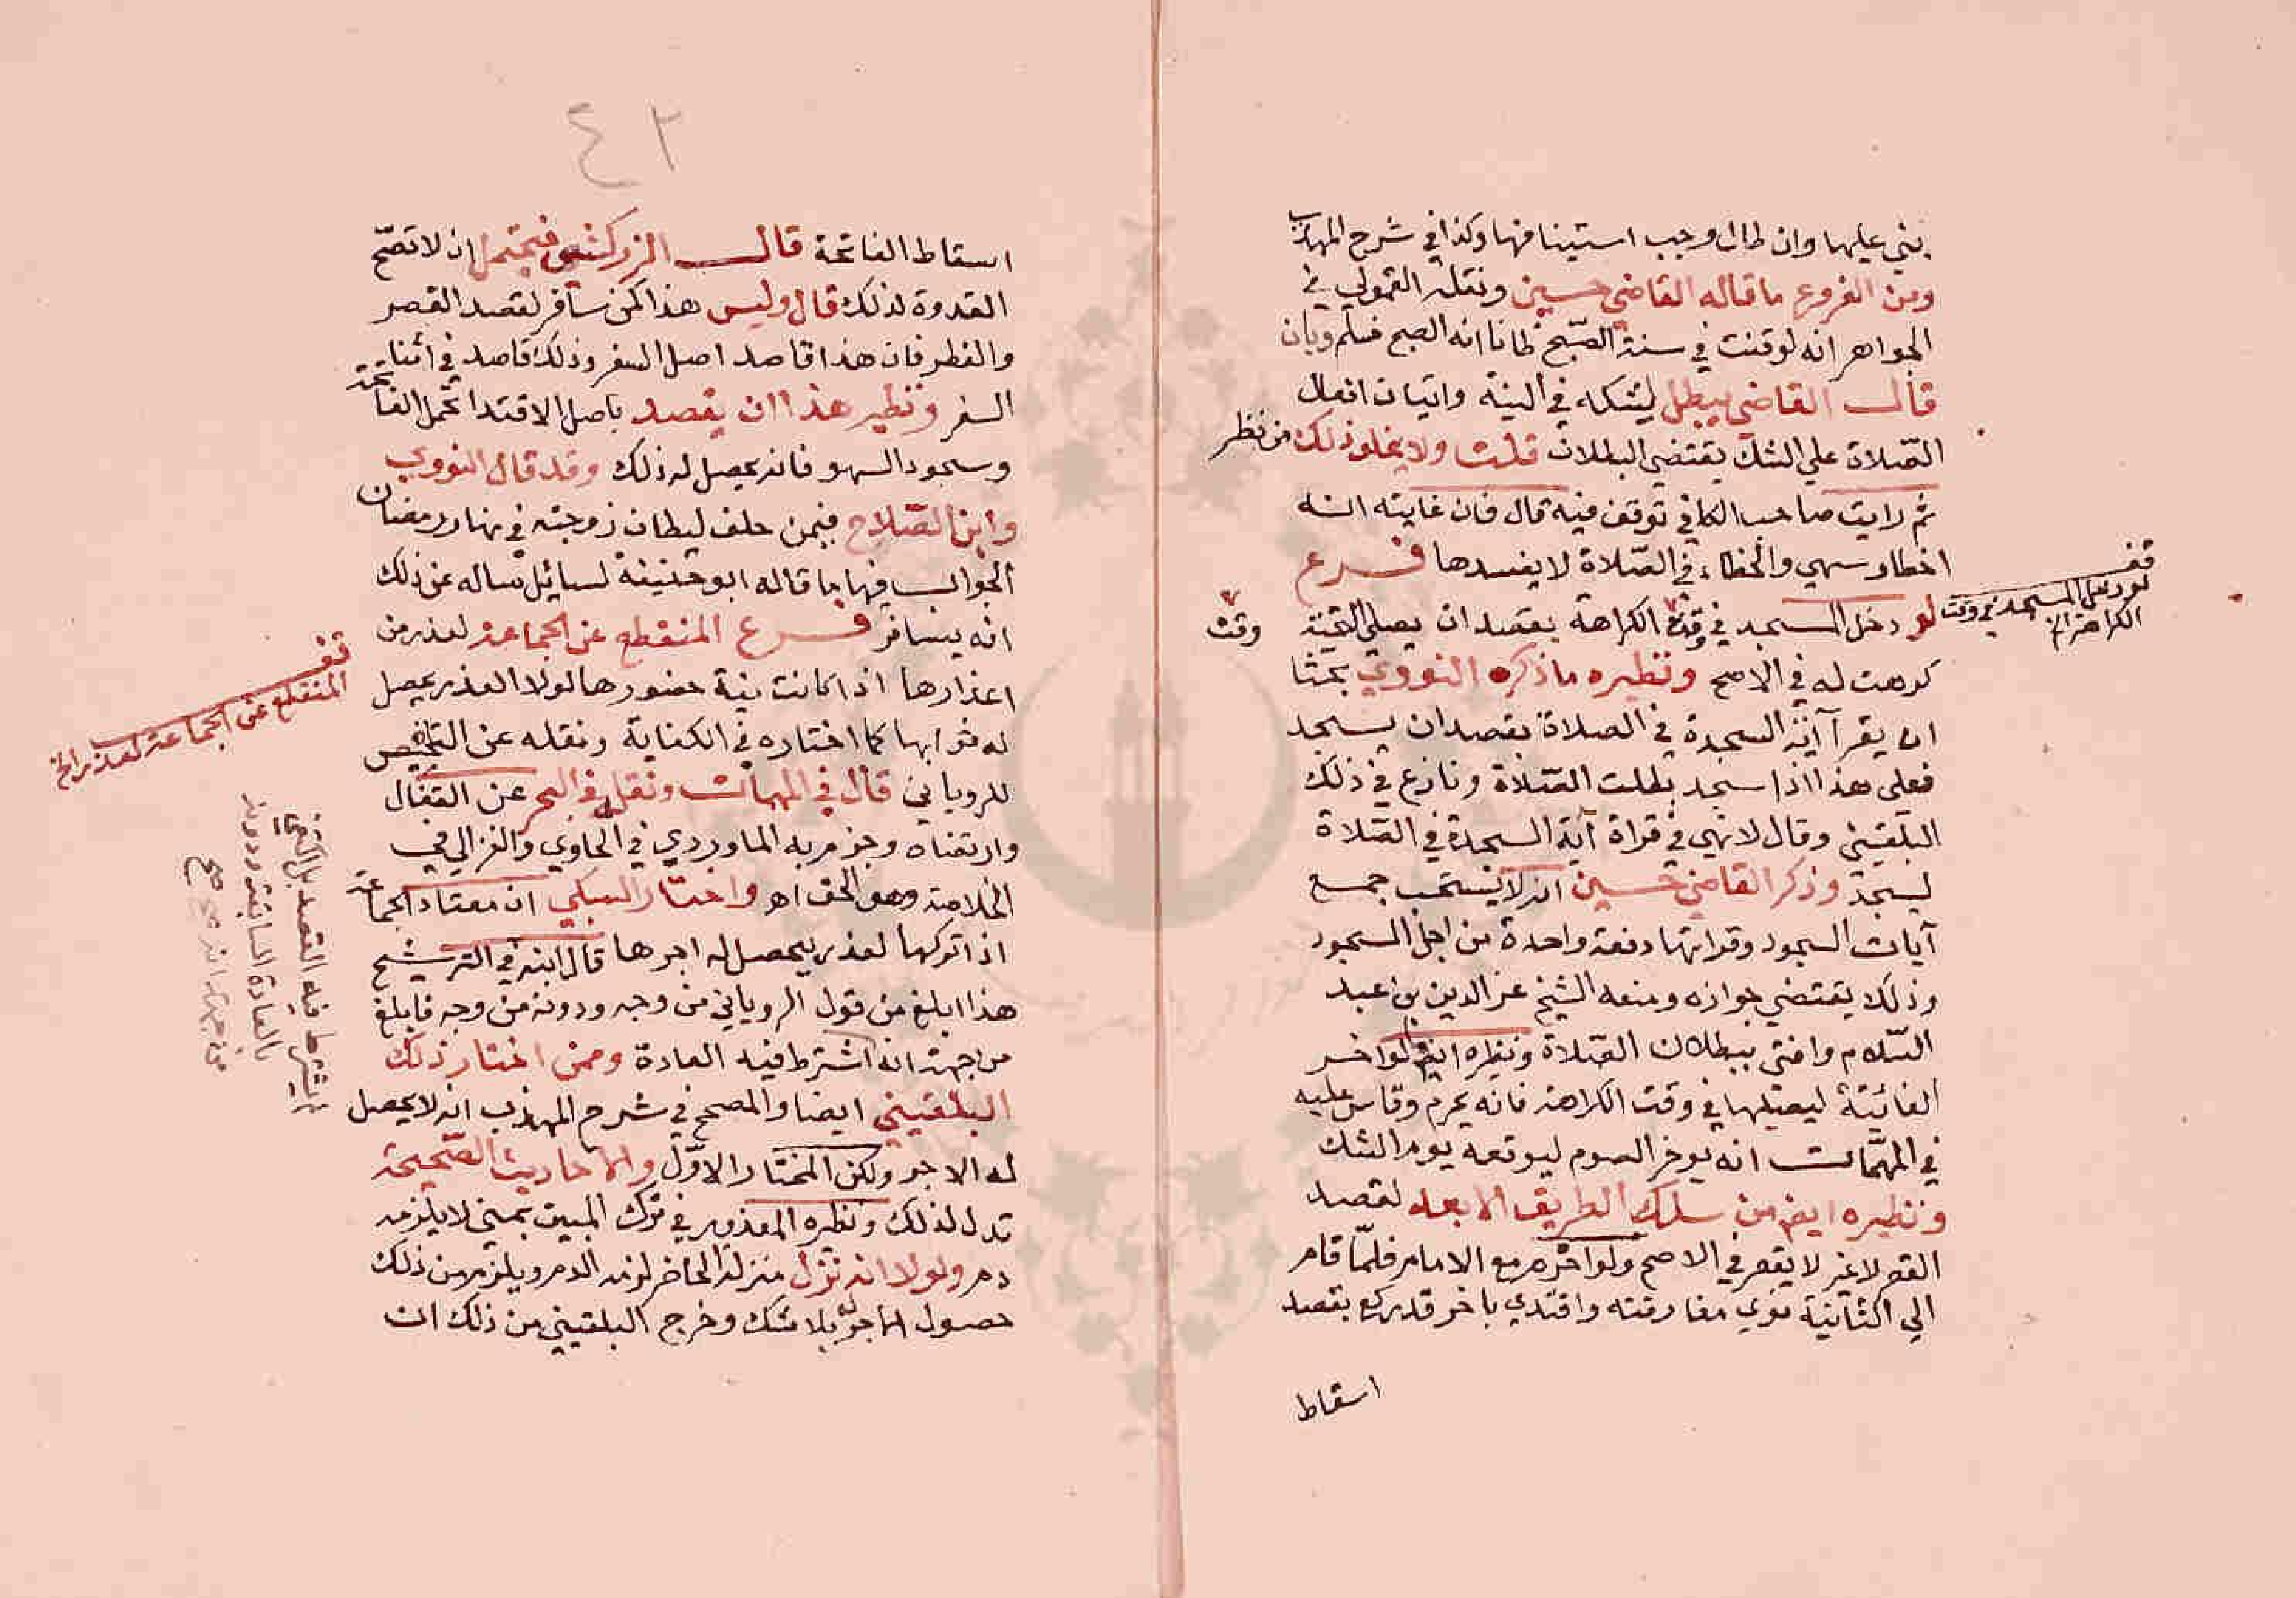 يبني عليها وان طال وجب استينافها وكذا في شرح المهذب
ومن الفروع ما قاله القاضي حسين ونقله القمولي في
الجواهر انه لو قنت في سنة الصبح ظانا انه الصبح فسلم وبان
قال القاضي يبطل لشكه في النية واتيان افعال
الصلاة علي الشك يقتضي البطلان قلت ولا يخلو ذلك من نظر
ثم رايت صاحب الكافي توقف فيه قال فان غايته انه
اخطا وسهي والخطاء في الصلاة لا يفسدها فرع
لو دخل المسجد في وقت الكراهة بقصد ان يصلي التحية
وقت
قف
لو دخل المسجد في وقت
الكراهة الخ
كرهت له في الاصح ونظيره ما ذكره النووي بحثا
ان يقرا آية السجدة في الصلاة بقصد ان يسجد
فعلي هذا اذا سجد بطلت الصلاة ونازع في ذلك
البلقيني وقال لا نهي في قراة آية السجدة في الصلاة
ليسجد وذكر القاضي حسين انه لا يستحب جمع
آيات السجود وقراتها دفعة واحدة من اجل السجود
وذلك يقتضي جوازه ومنعه الشيخ عز الدين بن عبد
السلام وافتي ببطلان الصلاة ونظيره ايضا لو اخر
الفائتة ليصليها في وقت الكراهة فانه يحرم وقاس عليه
في المهمات انه يوخر الصوم ليوقعه يوم الشك
ونظيره ايضا من سلك الطريق الابعد لقصد
القصر لا غير لا يقصر في الاصح ولو احرم مع الامام فلما قام
الي الثانية نوي مفارقته واقتدي باخر قد ركع بقصد
اسقاط
٤٢
اسقاط الفاتحة قال الزركشي فيحتمل ان لا تصح
القدوة لذلك قال وليس هذا كمن سافر لقصد القصر
والفطر فان هذا قاصد اصل السفر وذلك قاصد في اثناء
السفر ونظير هذا ان يقصد باصل الاقتدا تحمل الفاتحة
وسجود السهو فانه يحصل له ذلك وقد قال النووي
وابن الصلاح فيمن حلف ليطان زوجته في نهار رمضان
الجواب فيها ما قاله ابو حنيفة لسائل ساله عن ذلك
انه يسافر فرع المنقطع عن الجماعة لعذر من
اعذارها اذا كانت نية حضورها لولا العذر يحصل
له ثوابها كما اختاره في الكفاية ونقله عن التلخيص
للروياني قال في المهمات ونقله في البحر عن القفال
وارتضاه وجزم به الماوردي في الحاوي والغزالي في
الخلاصة وهو الحق اه واختار السبكي ان معتاد الجماعة
اذا تركها لعذر يحصل له اجرها قال ابنه في الترشيح
هذا ابلغ من قول الروياني من وجه ودونه من وجه فابلغ
من جهة انه اشترط فيه العادة وممن اختار ذلك
البلقيني ايضا والمصحح في شرح المهذب انه لا يحصل
له الاجر ولكن المختار الاول والاحاديث الصحيحة
تدل لذلك ونظيره المعذور في ترك المبيت بمني لا يلزمه
دم ولولا انه نزل منزلة الحاضر لزمه الدم ويلزم من ذلك
حصول الاجر له بلا شك وخرج البلقيني من ذلك ان
قف
المنقطع عن الجماعة لعذر الخ
يشترط فيه القصد بل اكتفي
بالعادة السابقة ودونه
من جهة انه صح